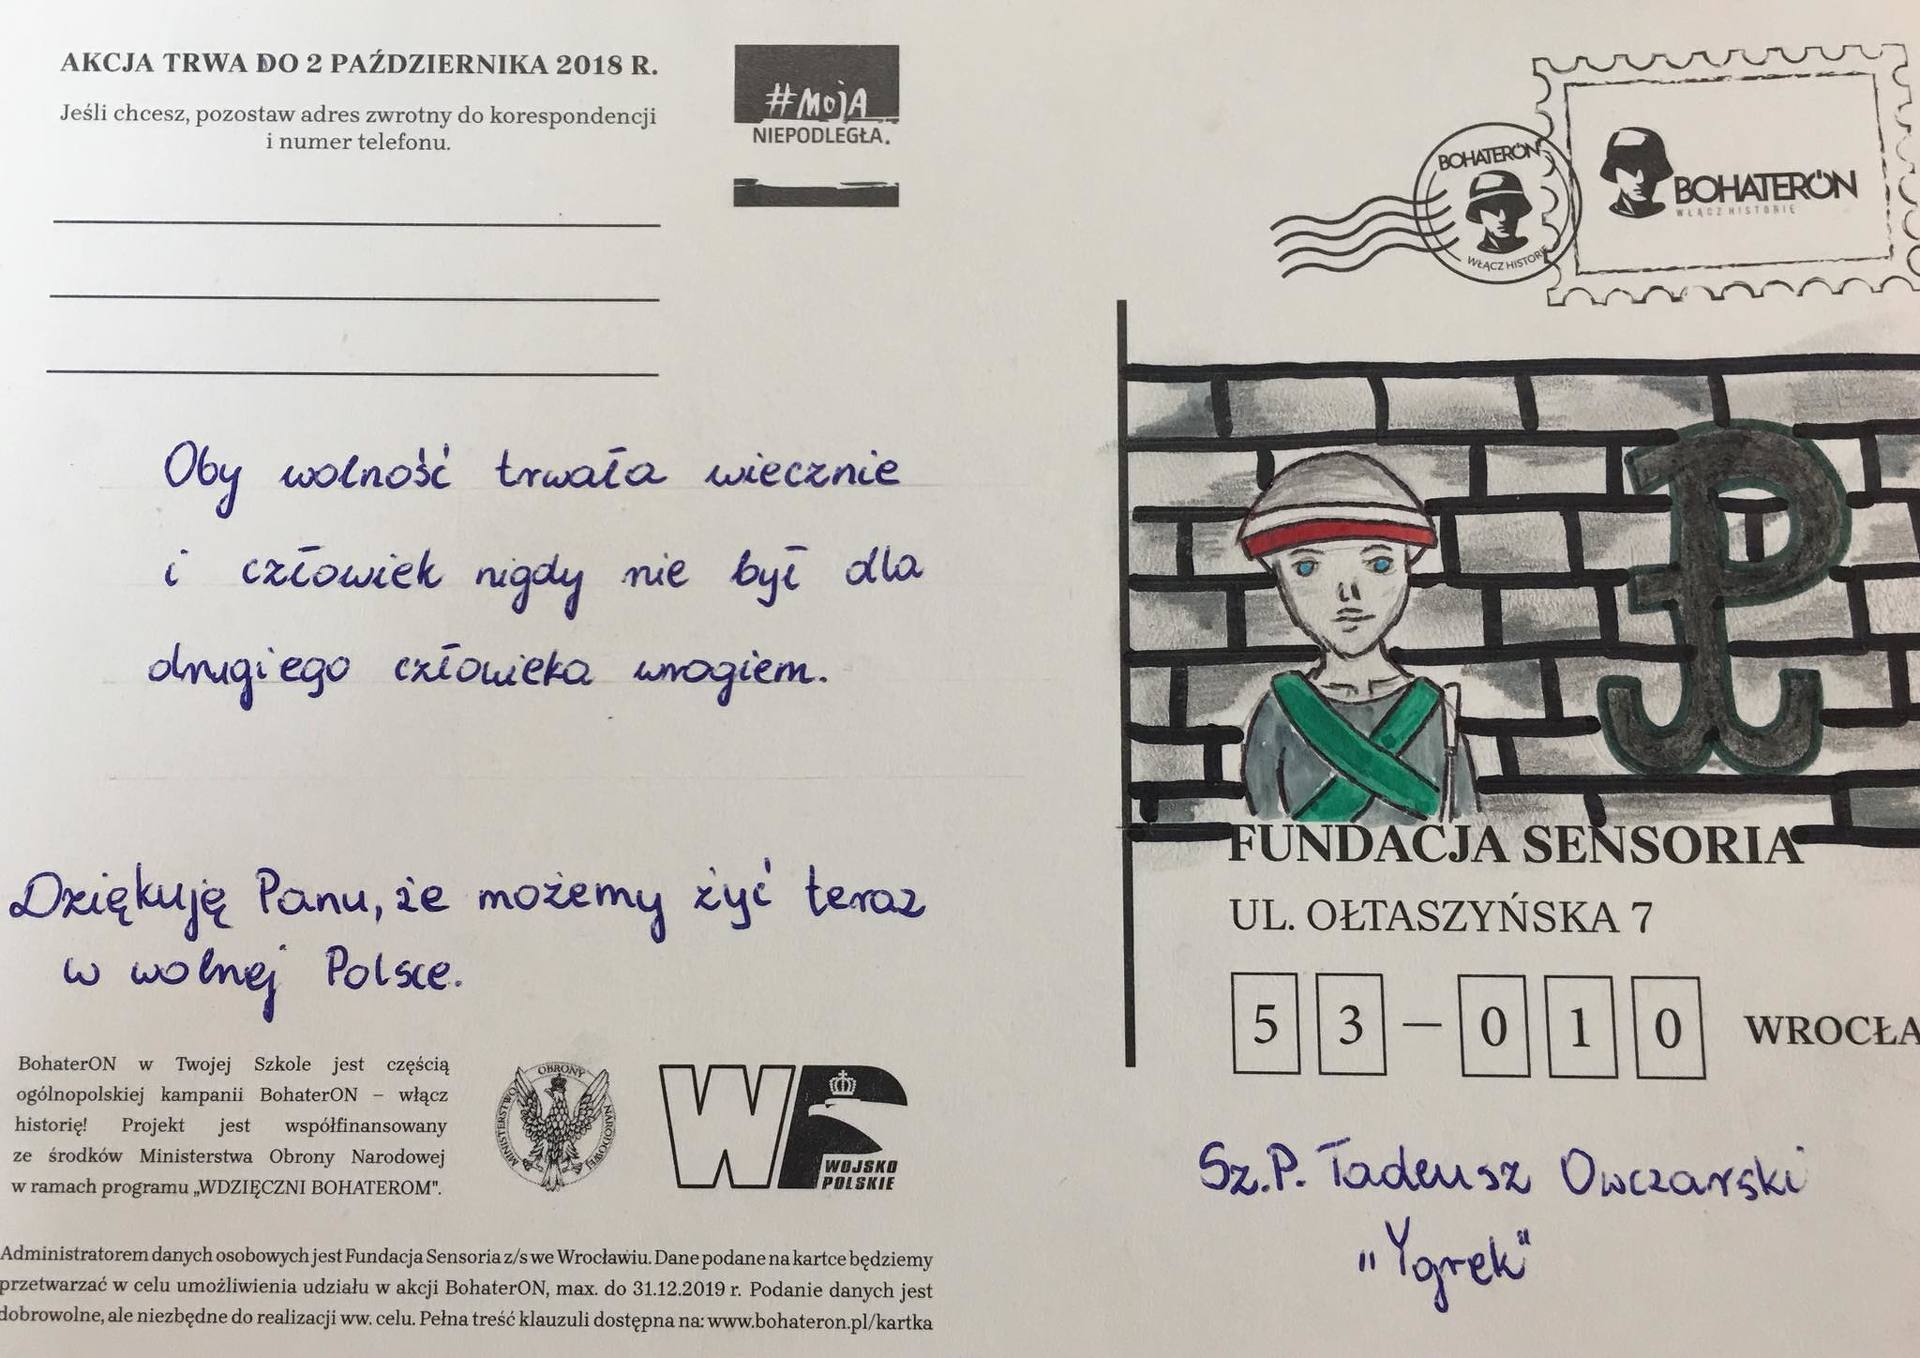 AKCJA TRWA DO 2 PAŹDZIERNIKA 2018 R.
Jeśli chcesz, pozostaw adres zwrotny do korespondencji
i numer telefonu.
#MOJA
NIEPODLEGŁA.
BOHATERÓN
WŁĄCZ HISTORIĘ
BOHATERÓN
WŁĄCZ HISTORIĘ
Oby wolność trwała wiecznie
i człowiek nigdy nie był dla
drugiego człowieka wrogiem.
Dziękuję Panu, że możemy żyć teraz
w wolnej Polsce.
BohaterON w Twojej Szkole jest częścią
ogólnopolskiej kampanii BohaterON – włącz
historię! Projekt jest współfinansowany
ze środków Ministerstwa Obrony Narodowej
w ramach programu „WDZIĘCZNI BOHATEROM".
MINISTERSTWO OBRONY NARODOWEJ
WP
WOJSKO
POLSKIE
Administratorem danych osobowych jest Fundacja Sensoria z/s we Wrocławiu. Dane podane na kartce będziemy
przetwarzać w celu umożliwienia udziału w akcji BohaterON, max. do 31.12.2019 r. Podanie danych jest
dobrowolne, ale niezbędne do realizacji ww. celu. Pełna treść klauzuli dostępna na: www.bohateron.pl/kartka
FUNDACJA SENSORIA
UL. OŁTASZYŃSKA 7
53–010 WROCŁA
Sz.P. Tadeusz Owczarski
„Ygrek"